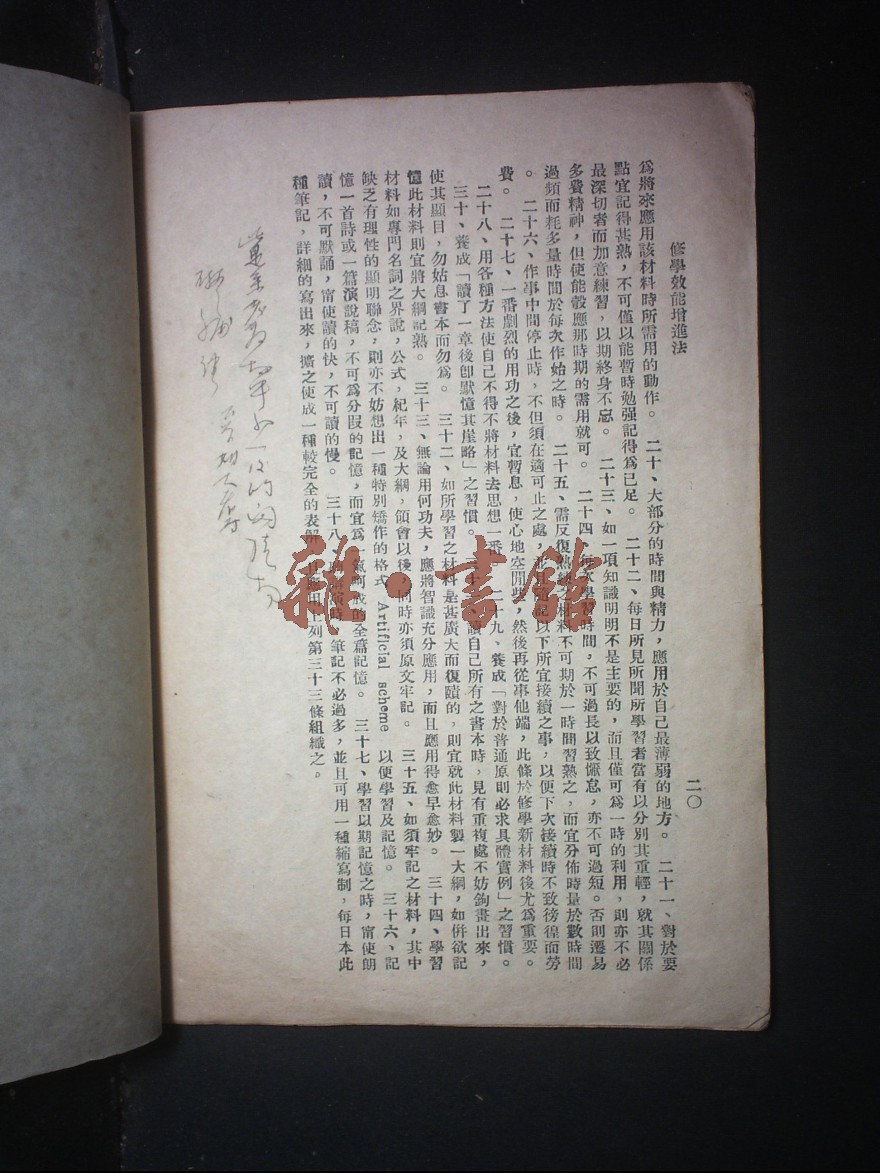 修學效能增進法
二〇
爲將來應用該材料時所需用的動作。 二十、大部分的時間與精力,應用於自己最薄弱的地方。 二十一、對於要
點宜記得甚熟,不可僅以能暫時勉强記得爲已足。 二十二、每日所見所聞所學習者當有以分別其重輕,就其關係
最深切者而加意練習,以期終身不忘。 二十三、如一項知識明明不是主要的,而且僅可爲一時的利用,則亦不必
多費精神,但使能彀應那時期的需用就可。 二十四、每次學習時間,不可過長以致懨怠,亦不可過短。否則遷易
過頻而耗多量時間於每次作始之時。 二十五、需反復熟練之材料不可期於一時間習熟之,而宜分佈時量於數時間
。 二十六、作事中間停止時,不但須在適可止之處,並且須記以下所宜接續之事,以便下次接續時不致徬徨而勞
費。 二十七、一番劇烈的用功之後,宜暫息,使心地空閒些,然後再從事他端,此條於修學新材料後尤爲重要。
二十八、用各種方法使自己不得不將材料去思想一番。 二十九、養成「對於普通原則必求具體實例」之習慣。
三十、養成「讀了一章後卽默憶其崖略」之習慣。 讀自己所有之書本時,見有重複處不妨鉤畫出來,
使其顯目,勿姑息書本而勿爲。 三十二、如所學習之材料是甚廣大而復賾的,則宜就此材料製一大綱,如倂欲記
憶此材料則宜將大綱記熟。 三十三、無論用何功夫,應將智識充分應用,而且應用得愈早愈妙。 三十四、學習
材料如專門名詞之界說,公式,紀年,及大綱,領會以後,同時亦須原文牢記。 三十五、如須牢記之材料,其中
缺乏有理性的顯明聯念,則亦不妨想出一種特別矯作的格式 Artificial scheme 以便學習及記憶。 三十六、記
憶一首詩或一篇演說稿,不可爲分段的記憶,而宜爲 氣呵成的全篇記憶。 三十七、學習以期記憶之時,甯使朗
讀,不可默誦,甯使讀的快,不可讀的慢。 三十八、 演時,筆記不必過多,並且可用一種縮寫制,每日本此
種筆記,詳細的寫出來,擴之使成一種較完全的表解,且應用上列第三十三條組織之。
雜·書館